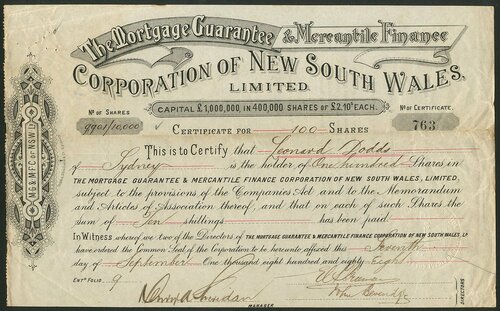 The Mortgage Guarantee & Mercantile Finance
CORPORATION OF NEW SOUTH WALES,
LIMITED.
CAPITAL £1,000,000, IN 400,000 SHARES OF £2.10s EACH.
No OF SHARES
9901/10,000
No OF CERTIFICATE.
763
CERTIFICATE FOR 100 SHARES
This is to Certify that Leonard Dodds
of Sydney is the holder of One hundred Shares in
THE MORTGAGE GUARANTEE & MERCANTILE FINANCE CORPORATION OF NEW SOUTH WALES, LIMITED,
subject to the provisions of the Companies Act and to the Memorandum
and Articles of Association thereof, and that on each of such Shares the
sum of Ten shillings has been paid.
In Witness whereof we two of the Directors of THE MORTGAGE GUARANTEE & MERCANTILE FINANCE CORPORATION OF NEW SOUTH WALES, LD
have ordered the Common Seal of the Corporation to be hereunto affixed this Seventh
day of September One thousand eight hundred and eighty Eight
ENTD FOLIO 9
MANAGER
DIRECTORS
M G & M F C OF N S W L